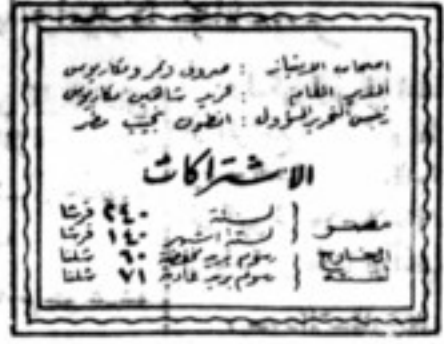 أصحاب الامتياز : صروف ونمر ومكاريوس
المدير العام : فريد شاهين مكاريوس
رئيس التحرير المسؤول : انطون نجيب مطر
الاشتراكات
مصر { لسنة ٢٤٠ قرشا
لستة أشهر ١٤٠ قرشا
الخارج لسنة { رسوم بريد مخفضة ٦٠ شلنا
رسوم بريد عادية ٧١ شلنا